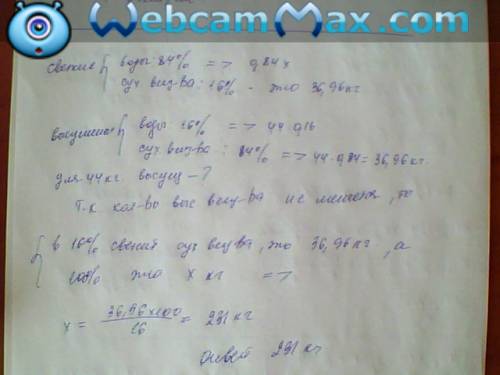 WebcamMax.com
свежие { воды: 84% => 0,84x
сух вещ-ва: 16% - это 36,96 кг
высушено { воды: 16% => 44·0,16
сух вещ-ва: 84% => 44·0,84 = 36,96 кг.
для 44 кг. высуш - ?
Т.к. кол-во вещ-ва не меняется, то
{ в 16% свежих сух вещ-ва, это 36,96 кг, а
100% это x кг =>
x = 36,96×100 / 16 = 231 кг
Ответ 231 кг